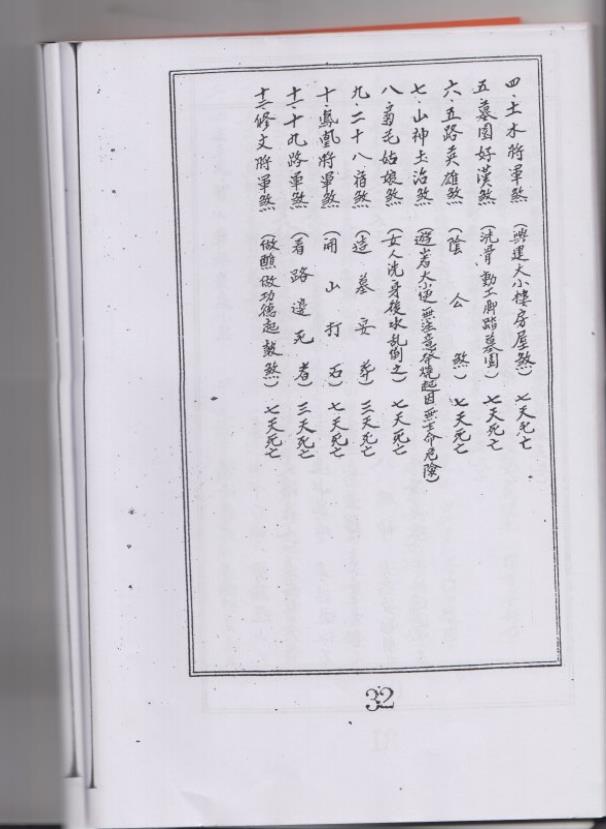 四．土木將軍煞（興建大小樓房屋煞）七天死亡
五．墓園好漢煞（洗骨動工脚踏墓園）七天死亡
六．五路英雄煞（陰公煞）七天死亡
七．山神土治煞（遊岩大小便無注意發燒 因無生命危險）
八．菊花姑娘煞（女人洗身後水乱倒之）七天死亡
九．二十八宿煞（造墓安葬）三天死亡
十．鳳凰將軍煞（開山打石）七天死亡
十一．十九路軍煞（看路邊死者）三天死亡
十二．修文將軍煞（做醮做功德起鼓煞）七天死亡
32